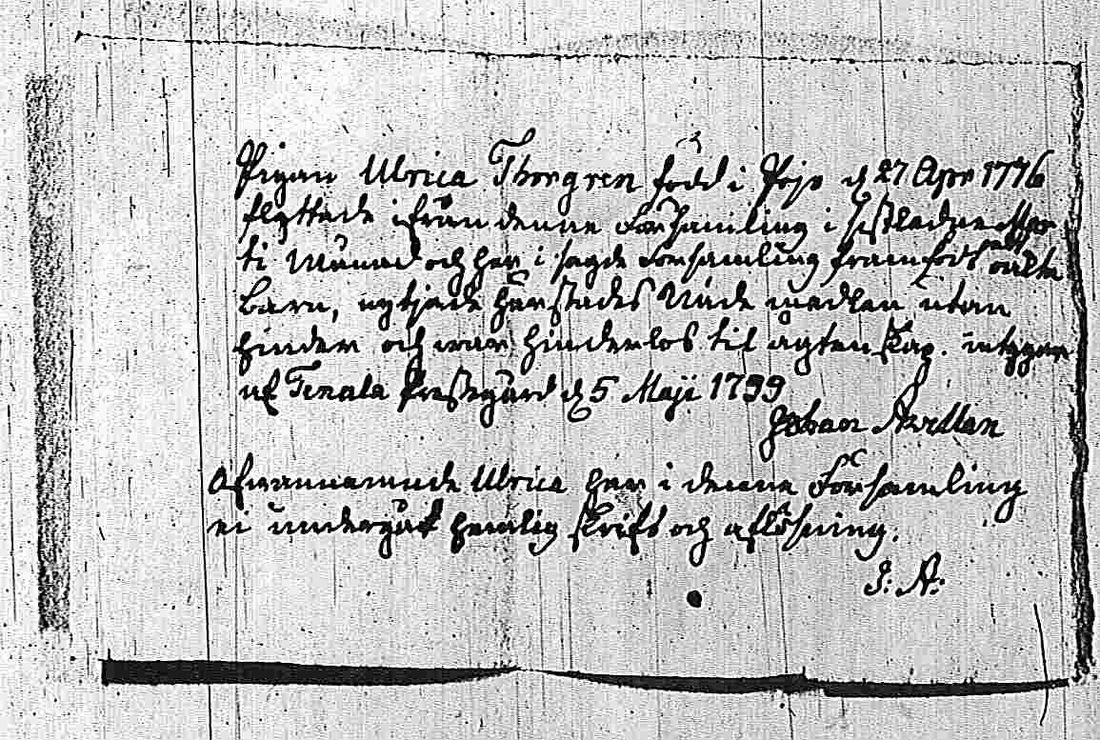 Pigan Ulrica Thorgren född i Pojo d 27 Apr 1776
flyttade ifrån denne Församling i sistledne Mar
ti Månad och har i sagde Församling framfödt oälta
barn, nytjade härstädes Nåde medlen utan
hinder och war hinderlös til ägtenskap.
af Tenala Prestegård d 5 Maji 1799
Johan Avellan
Ofwannämnde Ulrica har i denne Församling
ei undergåt hemlig skrift och aflösning.
J: A: